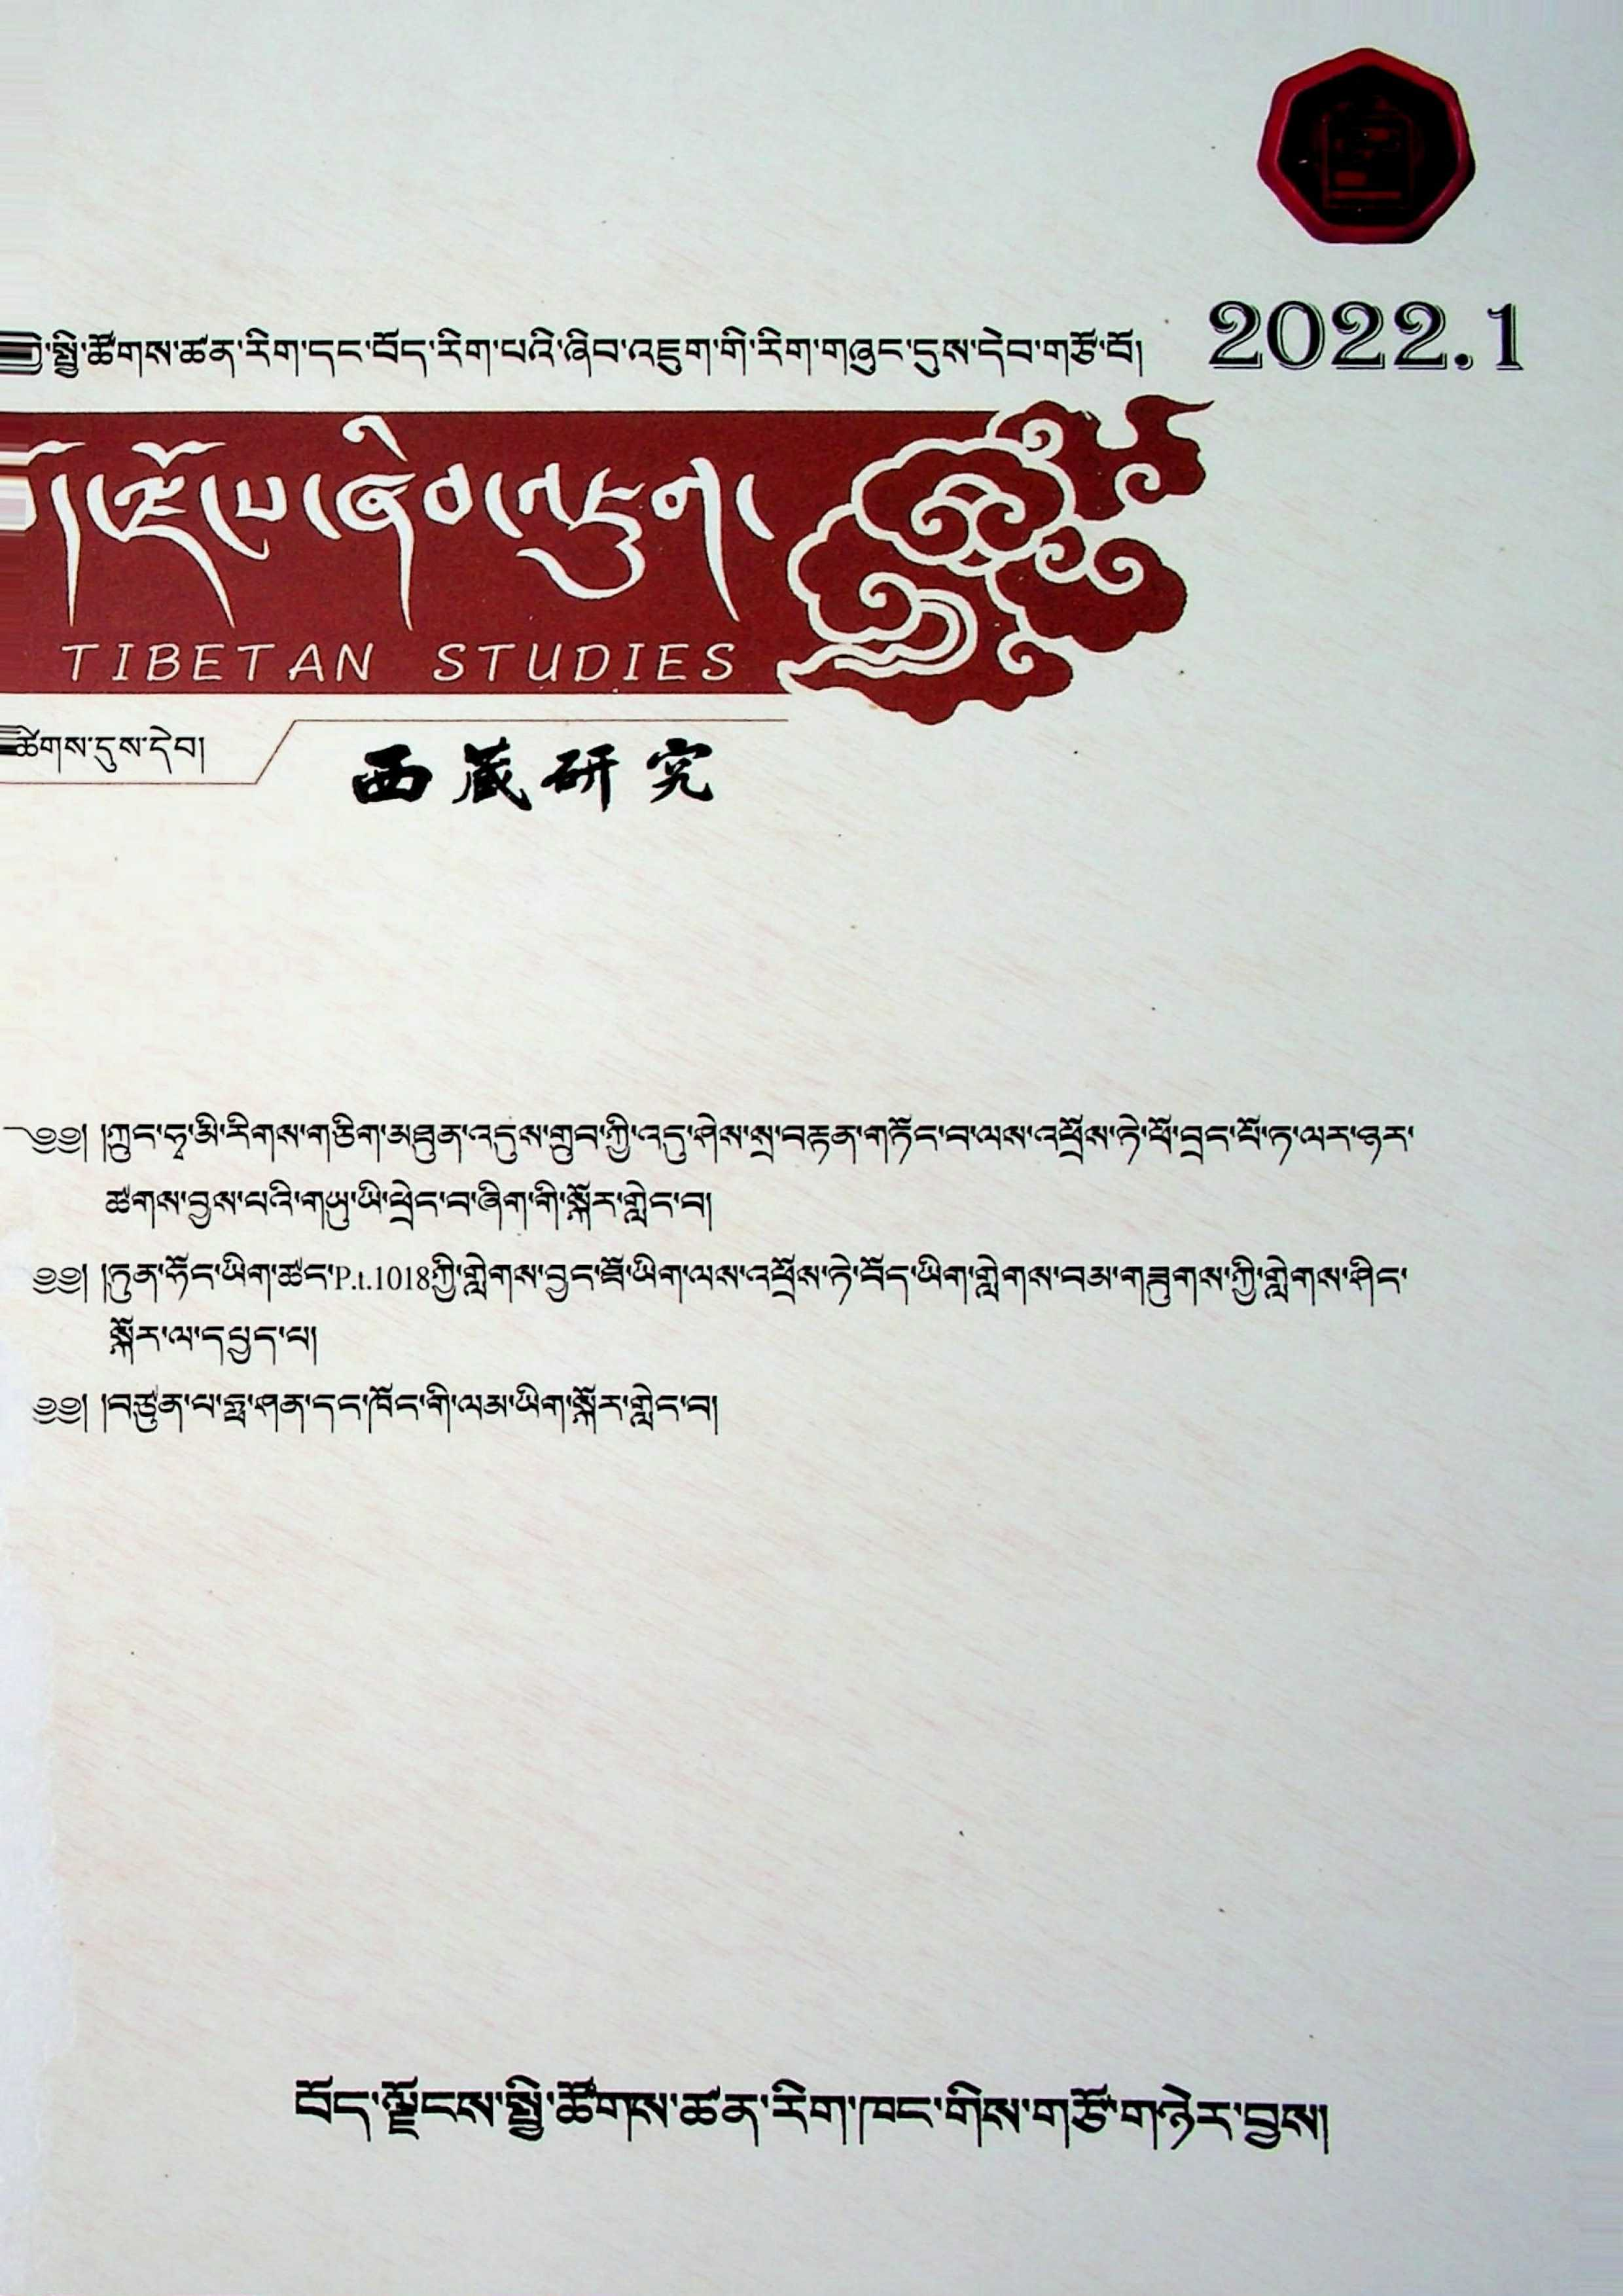 སྤྱི་ཚོགས་ཚན་རིག་དང་བོད་རིག་པའི་ཞིབ་འཇུག་གི་རིག་གཞུང་དུས་དེབ་གཙོ་བོ།
2022.1
ལྗོངས་ཞིབ་འཇུག
TIBETAN STUDIES
ཚིགས་དུས་དེབ།
西藏研究
༄༅། །ཀྲུང་ཧྭ་མི་རིགས་གཅིག་མཐུན་འདུས་གྲུབ་ཀྱི་འདུ་ཤེས་སྲ་བརྟན་གཏོང་བ་ལས་འཕྲོས་ཏེ་ཕོ་བྲང་པོ་ཏ་ལར་ཉར་
ཚགས་བྱས་པའི་གཡུ་ཡི་ཕྲེང་བ་ཞིག་གི་སྐོར་གླེང་བ།
༄༅། །ཏུན་ཧོང་ཡིག་ཚང་P.t.1018ཀྱི་གླེགས་བྱང་ཐོ་ཡིག་ལས་འཕྲོས་ཏེ་བོད་ཡིག་གླེགས་བམ་གཟུགས་ཀྱི་གླེགས་ཤིང་
སྐོར་ལ་དཔྱད་པ།
༄༅། །བཙུན་པ་ཧྥ་ཤན་དང་ཁོང་གི་ལམ་ཡིག་སྐོར་གླེང་བ།
བོད་ལྗོངས་སྤྱི་ཚོགས་ཚན་རིག་ཁང་གིས་གཙོ་གཉེར་བྱས།